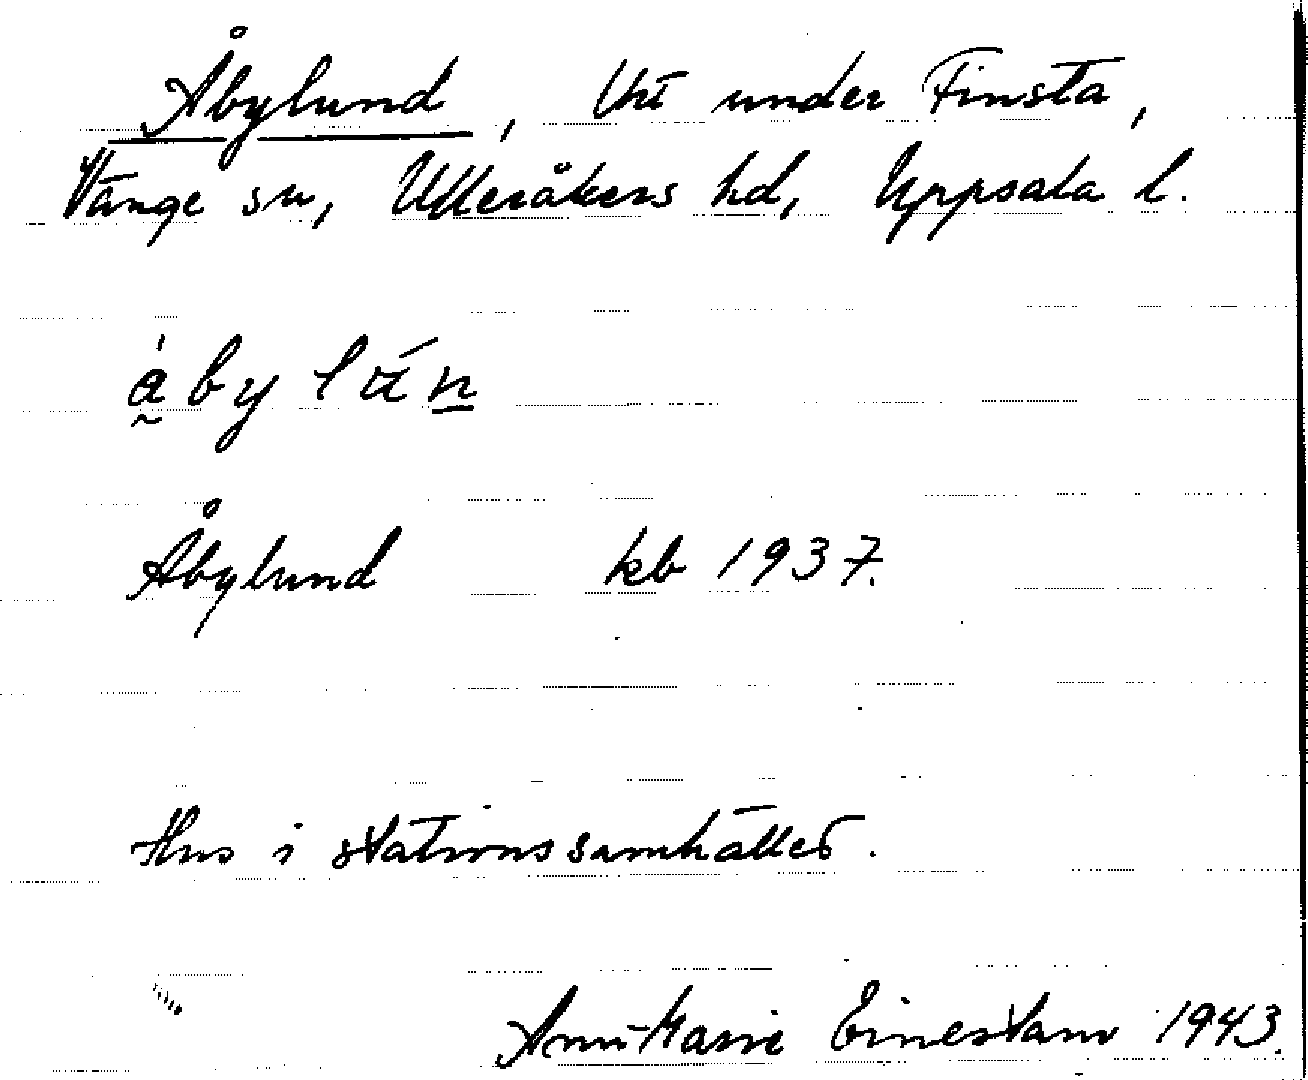 Åbylund, Uti under Finsta,
Vänge sn, Ulleråkers hd, Uppsala l.
Åbylund kb 1937.
Hus i stationssamhället.
Ann-Marie Einerstam 1943.